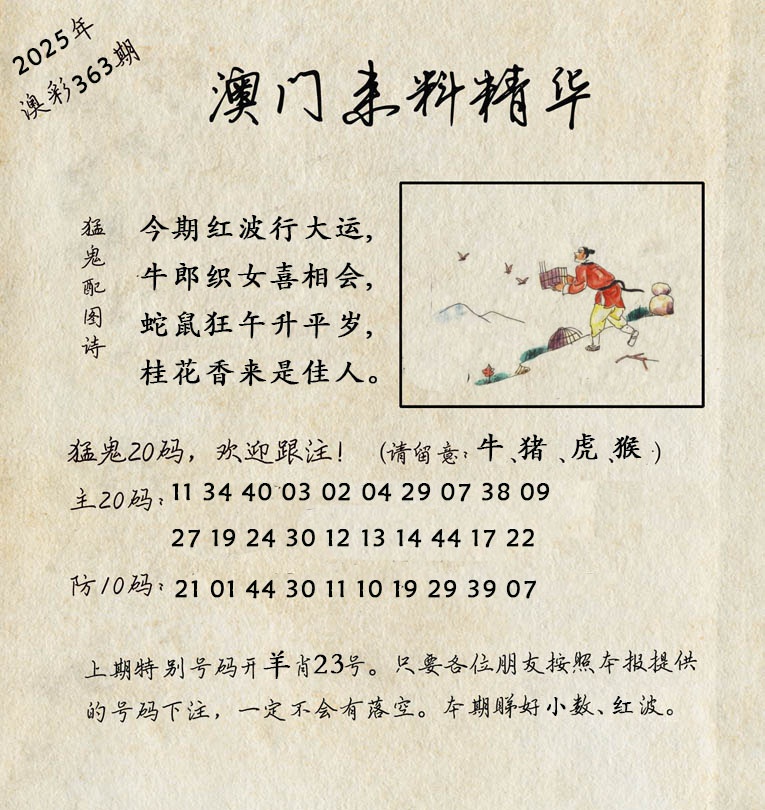 2025年
澳彩363期
澳门来料精华
猛鬼配图诗
今期红波行大运,
牛郎织女喜相会,
蛇鼠狂午升平岁,
桂花香来是佳人。
猛鬼20码，欢迎跟注！（请留意：牛、猪、虎、猴）
主20码：11 34 40 03 02 04 29 07 38 09
27 19 24 30 12 13 14 44 17 22
防10码：21 01 44 30 11 10 19 29 39 07
上期特别号码开羊肖23号。只要各位朋友按照本报提供
的号码下注，一定不会有落空。本期睇好小数、红波。